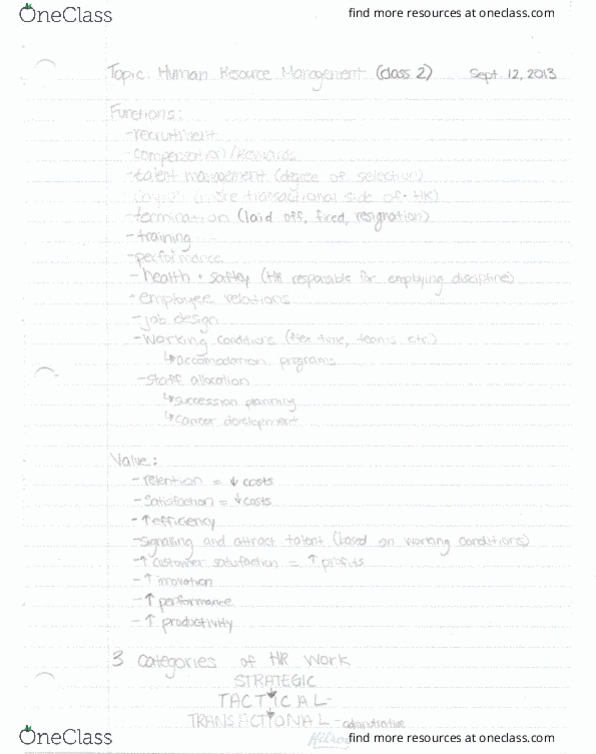 OneClass
find more resources at oneclass.com
Topic: Human Resource Management (class 2) Sept. 12, 2013
Functions:
-recruitment
-compensation/Rewards
-talent management (degree of selection)
(more transactional side of HR)
-termination (laid off, fired, resignation)
-training
-performance
-health + saftey (HR responsible for employing discipline)
-employee relations
-job design
-working conditions (flex time, teams etc.)
↳accomodation programs
-Staff allocation
↳succession planning
↳career development
Value:
-retention = ↓ costs
-Satisfaction = ↓costs
-↑efficiency
-signaling and attract talent (based on working conditions)
-↑ customer satisfaction = ↑ profits
-↑ inovation
-↑ performance
-↑ productivity
3 categories of HR Work
STRATEGIC
↓
TACTICAL-
↓
TRANSACTIONAL-administrative
OneClass
find more resources at oneclass.com